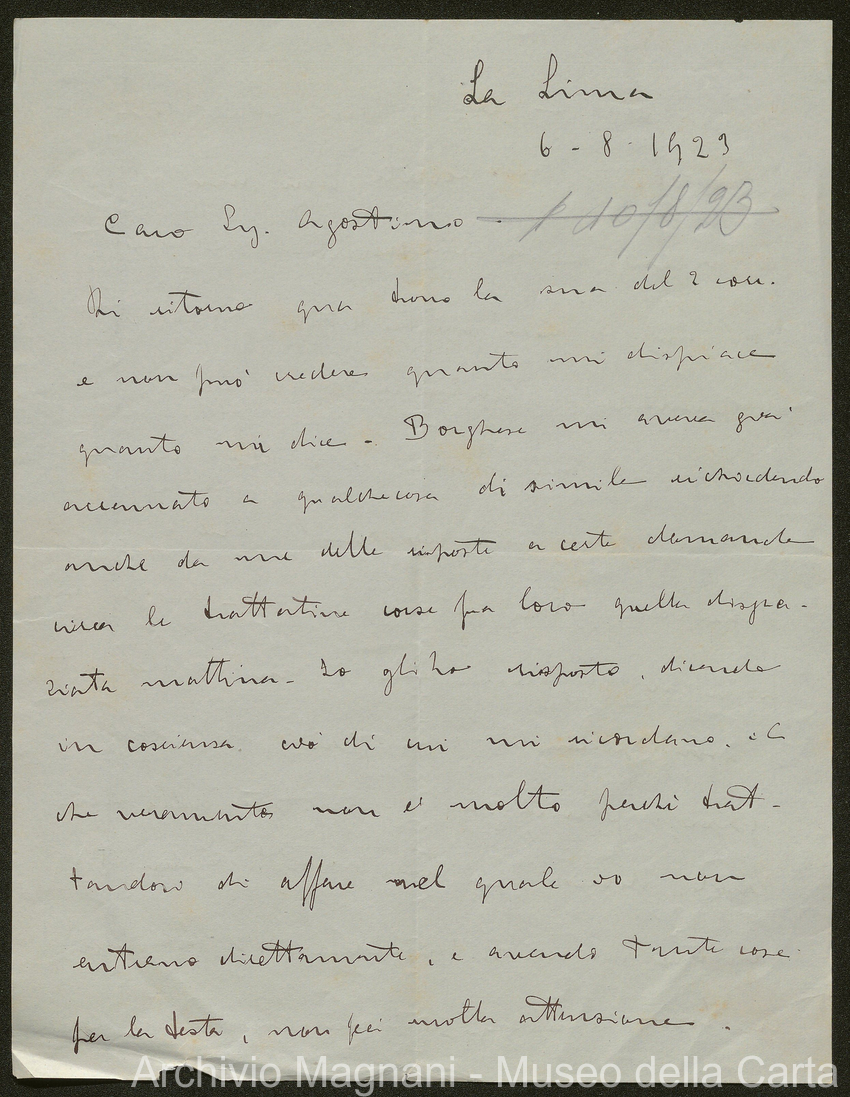 La Lima
6 - 8 - 1923
Caro Sig. Agostino - 
10/8/23
Di ritorno qua trovo la sua del 2 corr.
e non può credere quanto mi dispiace
quanto mi dice - Borghese mi aveva già
accennato a qualchecosa di simile richiedendo
anche da me delle risposte a certe domande
circa le trattative corse fra loro quella disgra-
ziata mattina - Io gli ho risposto, dicendo
in coscienza ciò di cui mi ricordavo, il
che veramente non è molto perchè trat-
tandosi di affare nel quale io non
entravo direttamente, e avendo tante cose
per la testa, non feci molta attenzione.
Archivio Magnani - Museo della Carta